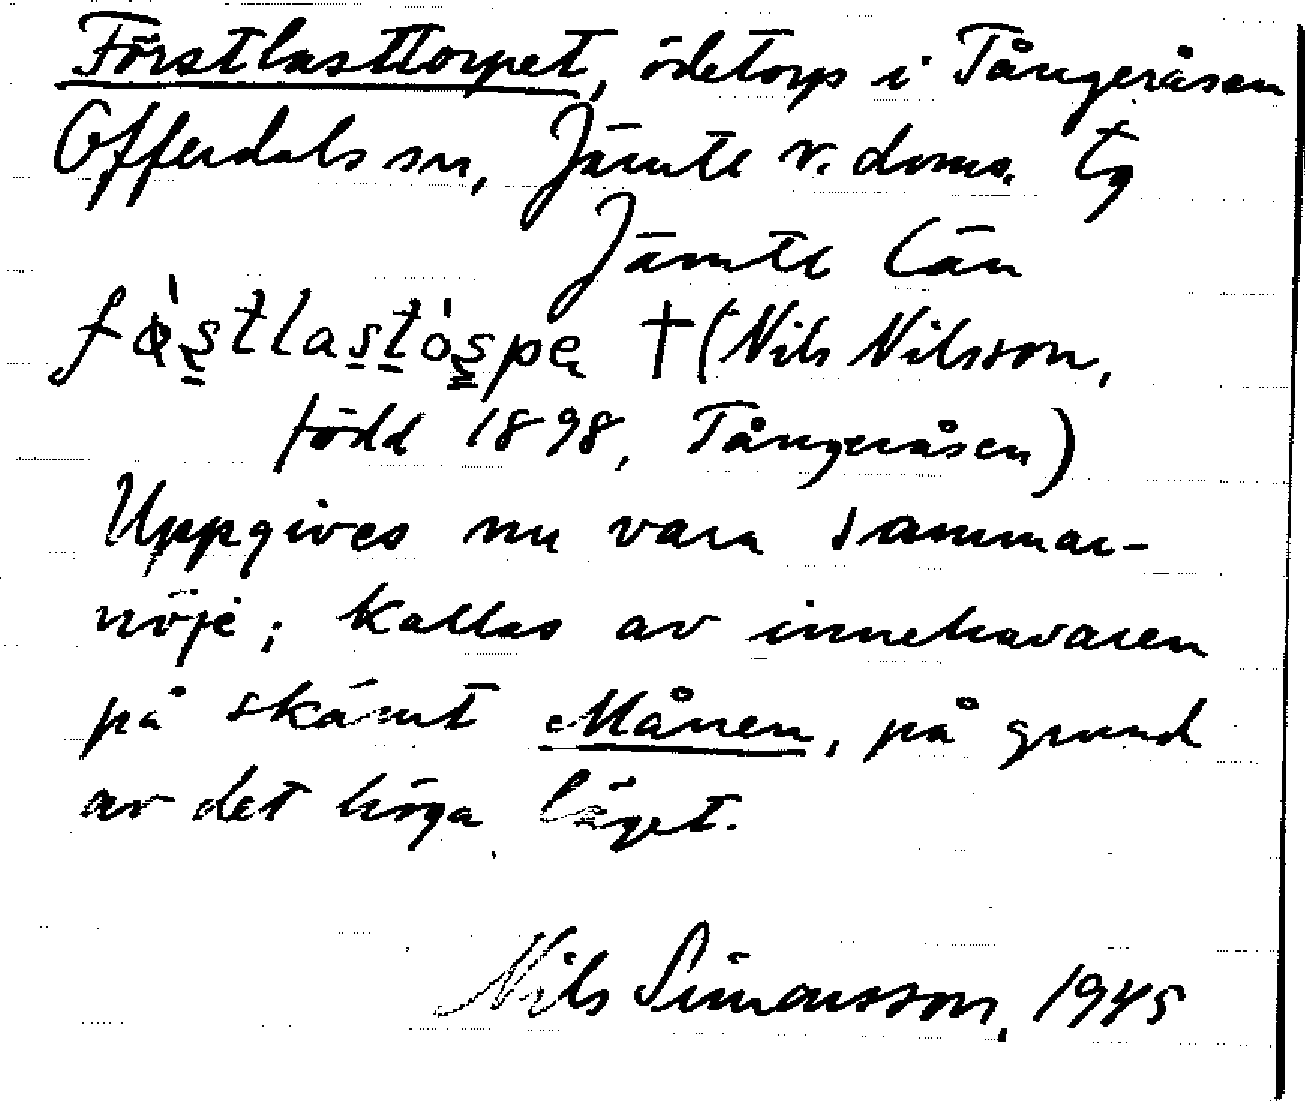 Förstlasttorpet, ödetorp i Tångeråsen
Offerdals sn, Jämtl v. doms. tg
Jämtl län
†(Nils Nilsson,
född 1898, Tångeråsen)
Uppgives nu vara sommar-
nöje; kallas av innehavaren
på skämt Månen, på grund
av det höga läget.
Nils Simonsson, 1945